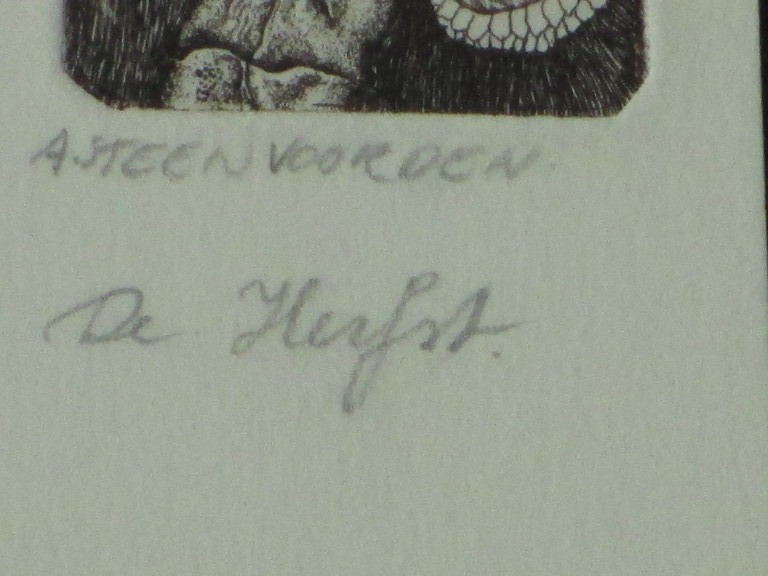 A.STEENVOORDEN.
De Herfst.